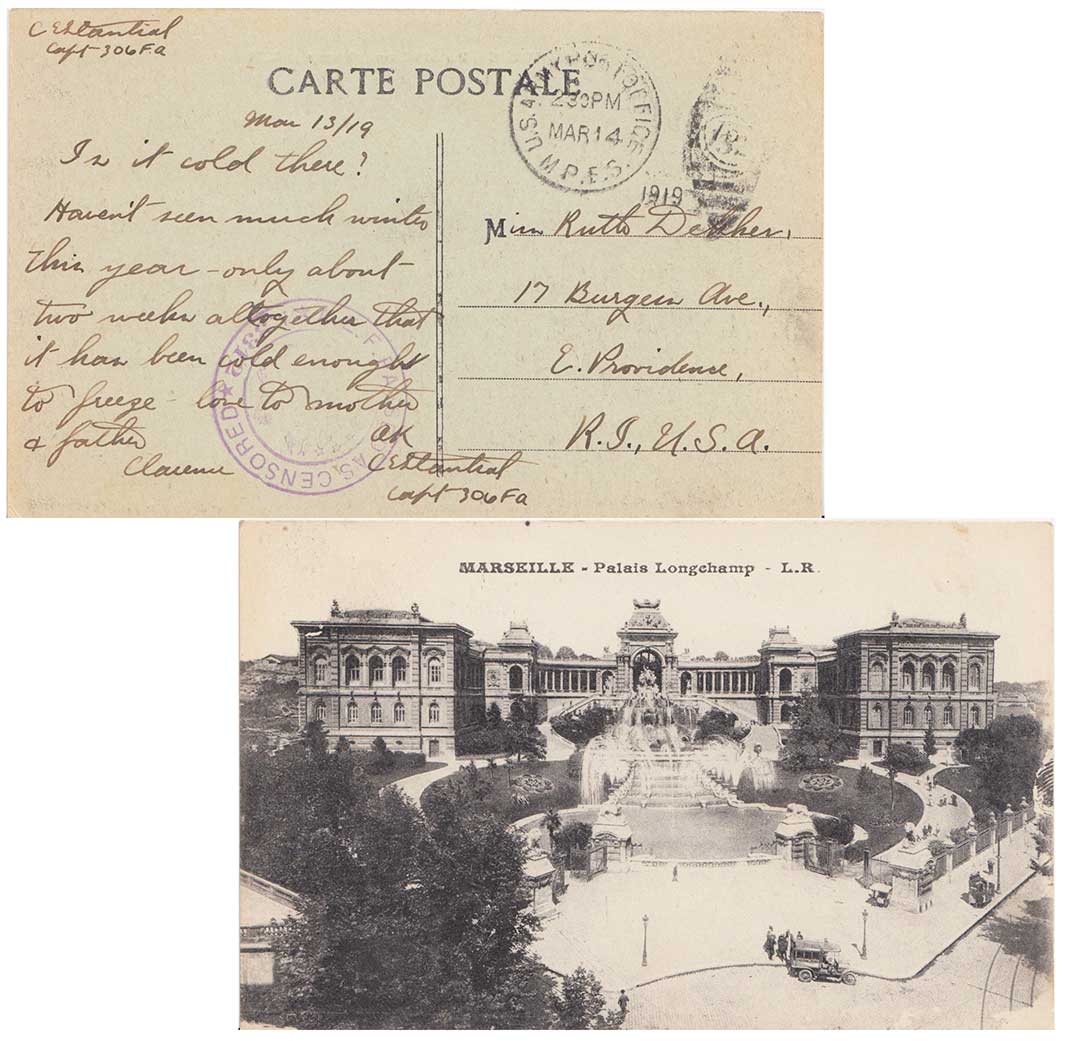 C E Stantial
Capt 306 F.a
CARTE POSTALE
Mar 13/19
Is it cold there?
Haven't seen much winter
this year - only about
two weeks altogether that
it has been cold enought
to freeze - love to mother
& father
Clarence
OK
C E Stantial
Capt 306 Fa
U.S. ARMY POST OFFICE
230 PM
MAR 14
M.P.E.S.
1919
Miss Ruth
17 Burgess Ave.,
E. Providence,
R.I., U.S.A.
CENSORED
MARSEILLE - Palais Longchamp - L.R.